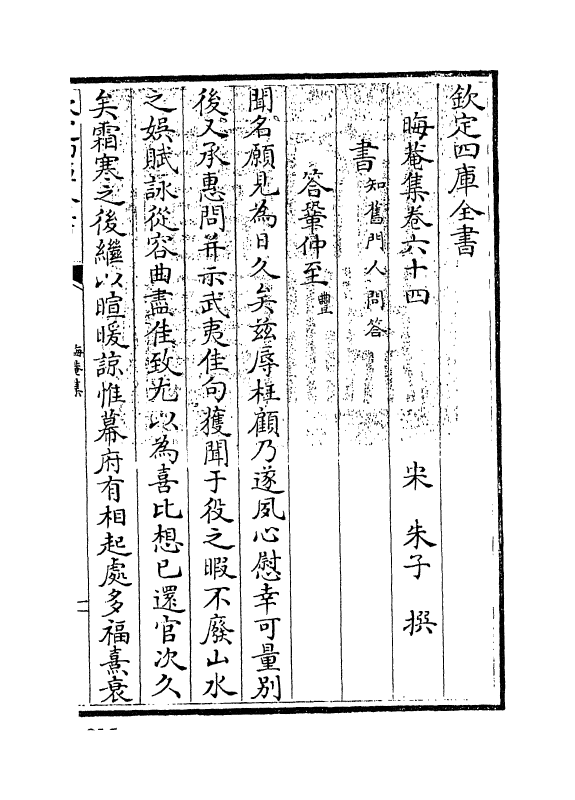 欽定四庫全書
晦菴集卷六十四
宋 朱子 撰
書知舊門人問答
答鞏仲至豐
聞名願見為日久矣兹辱枉顧乃遂夙心慰幸可量别
後又承惠問并示武夷佳句獲聞于役之暇不廢山水
之娯賦詠從容曲盡佳致尤以為喜比想已還官次久
矣霜寒之後繼以暄暖諒惟幕府有相起處多福熹衰
晦菴集